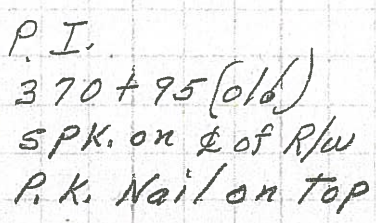 P.I.
370+95 (old)
SPK. on ℄ of R/W
P.K. Nail on Top